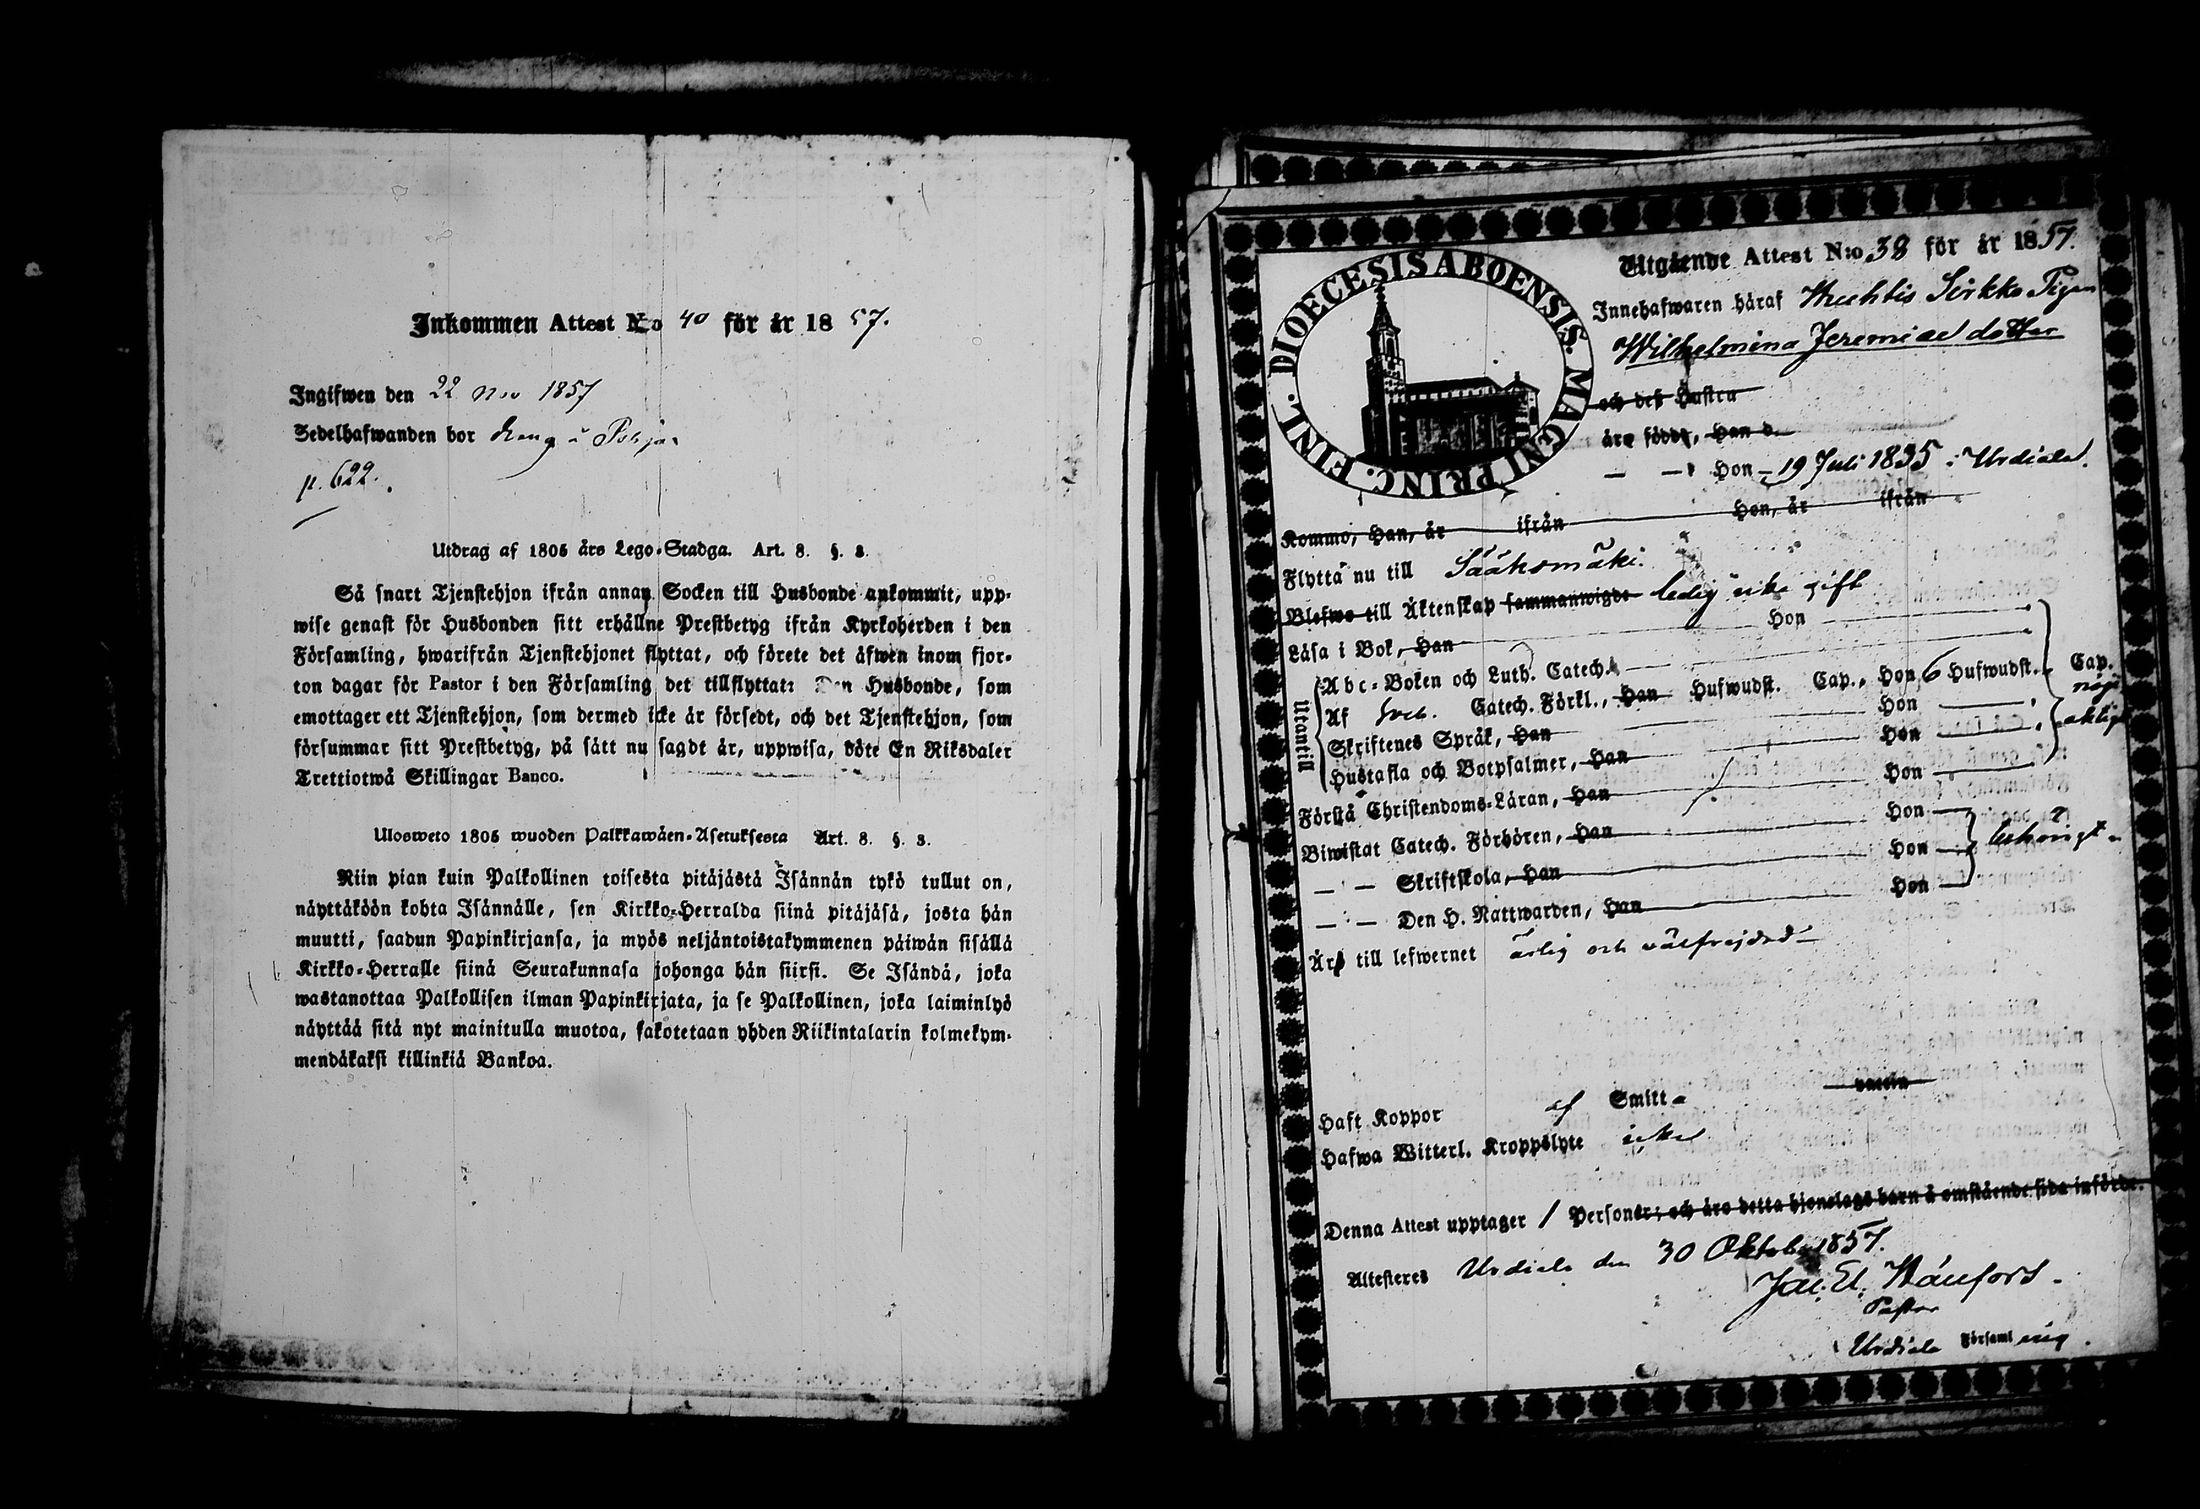 Inkommen Attest N:o 40 för år 1857.
Ingifwen den 22 Nov 1857
Sedelhafwanden bor dräng i Pohja
p. 622.
Utdrag af 1805 års Lego-Stadga. Art. 8. §. 3.
Så snart Tjenstehjon ifrån annan Socken till Husbonde ankommit, upp-
wise genast för Husbonden sitt erhållne Prestbetyg ifrån Kyrkoherden i den
Församling, hwarifrån Tjenstehjonet flyttat, och förete det äfwen inom fjor-
ton dagar för Pastor i den Församling det tillflyttat: Den Husbonde, som
emottager ett Tjenstehjon, som dermed icke är försedt, och det Tjenstehjon, som
försummar sitt Prestbetyg, på sätt nu sagdt är, uppwisa, böte En Riksdaler
Trettiotwå Skillingar Banco.
Ulosweto 1805 wuoden Palkkawäen-Asetuksesta Art. 8. §. 3.
Niin pian kuin Palkollinen toisesta pitäjästä Isännän tykö tullut on,
näyttäköön kohta Isännälle, sen Kirkko-Herralda siinä pitäjäsä, josta hän
muutti, saadun Papinkirjansa, ja myös neljäntoistakymmenen päiwän sisällä
Kirkko-Herralle siinä Seurakunnasa johonga hän siirsi. Se Isändä, joka
wastanottaa Palkollisen ilman Papinkirjata, ja se Palkollinen, joka laiminlyö
näyttää sitä nyt mainitulla muotoa, sakotetaan yhden Riikintalarin kolmekym-
mendäkaksi killinkiä Bankoa.
DIOECESIS ABOENSIS. MAGNI PRINC. FINL.
Utgående Attest N:o 38 för år 1857.
Innehafwaren häraf Huhtis Sirkko Pigan
Wilhelmina Jeremiae dotter
och dess Hustru
äro födde, Han d.
— — Hon 19 Juli 1835 i Urdiala.
Kommo, Han, år ifrån Hon, år ifrån
Flytta nu till Sääksmäki.
Blefwo till Äktenskap sammanwigde ledig icke gift
Läsa i Bok, Han Hon
Utantill
Abc-Boken och Luth. Catech.
Af Sveb. Catech. Förkl., Han Hufwudst. Cap., Hon 6 Hufwudst. Cap.
Skriftenes Språk, Han Hon
Hustafla och Botpsalmer, Han Hon
nöjaktigt
Förstå Christendoms-Läran, Han Hon
Biwistat Catech. Förhören, Han Hon
— — Skriftskola, Han Hon
— — Den H. Nattwarden, Han Hon
behörigt
Äro till lefwernet ärlig och välfrejdad
Haft Koppor af Smitta vaccin
Hafwa Witterl. Kroppslyte icke
Denna Attest upptager 1 Personer; och äro detta hjonelags barn å omstående sida införde.
Altesteres Urdiala den 30 Oktober 1857.
Jac. El. Hänfors.
Pastor
Urdiala Församling.